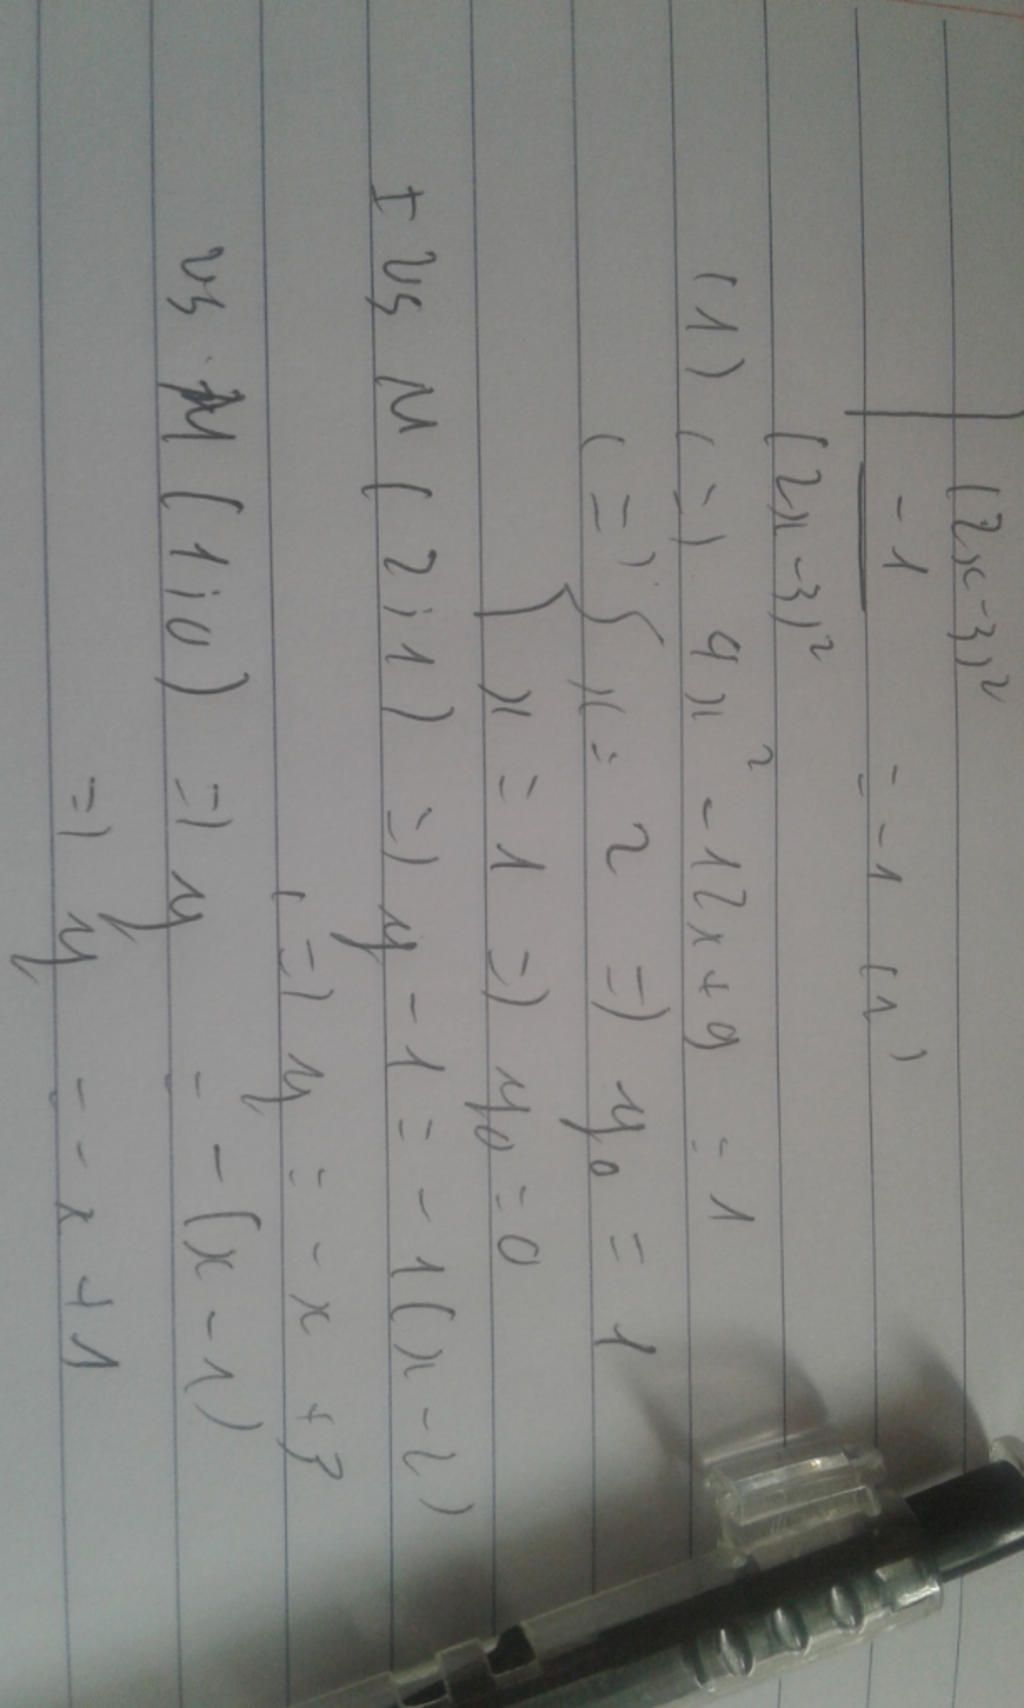 (2x-3)²
-1 = -1 (1)
(2x-3)²
(1) (=) 4x² - 12x + 9 = 1
(=) { x = 2 => y₀ = 1
x = 1 => y₀ = 0
+ Vs M (2;1) => y - 1 = -1(x-2)
(=) y = -x + 3
Vs M (1;0) => y = -(x-1)
=> y = -x + 1